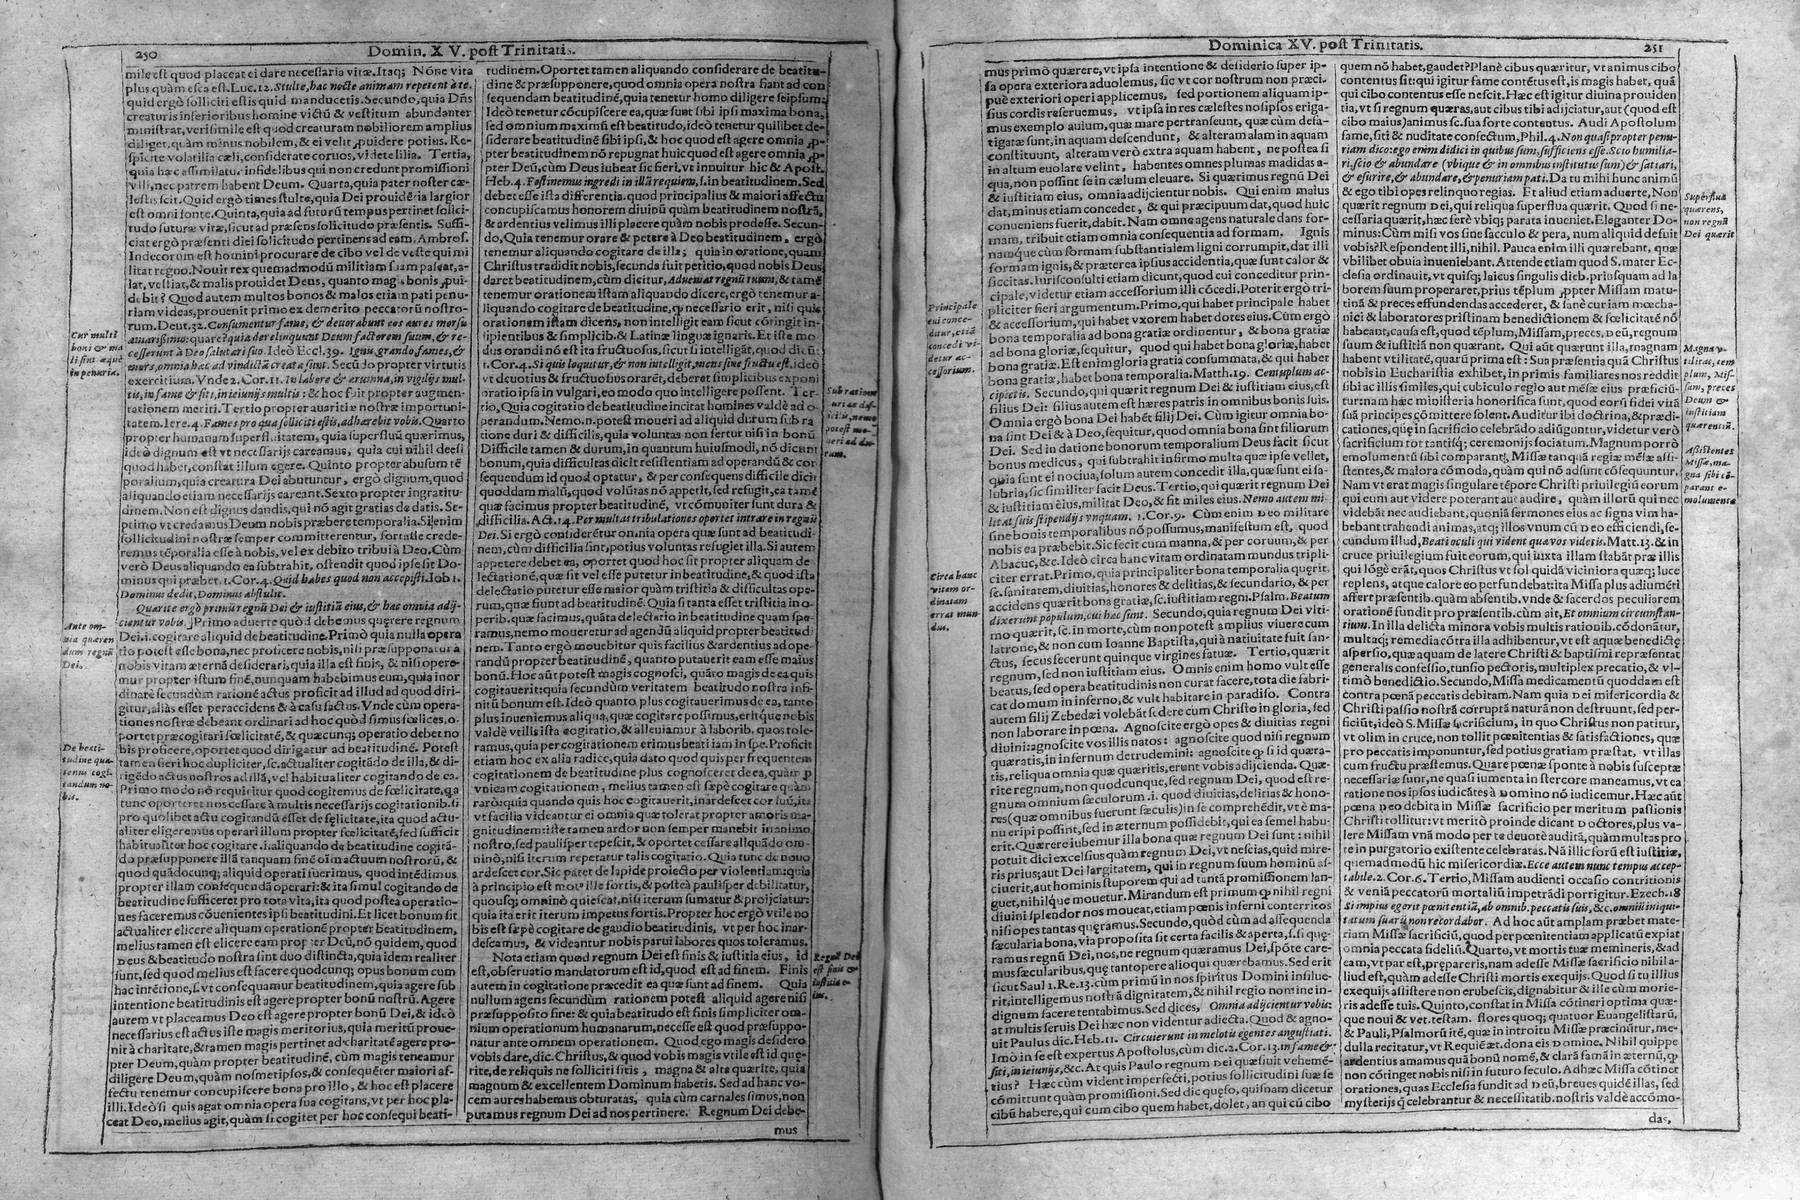 250
Domin. X V. post Trinitatis.
mile est quod placeat ei dare necessaria vitæ. Itaq; Nóne vita
plus quàm esca est. Luc. 12. Stulte, hac nocte animam repetent à te.
quid ergò solliciti estis quid manducetis. Secundo, quia Dñs
creaturis inferioribus homine victū & vestitum abundanter
ministrat, verisimile est quod creaturam nobiliorem amplius
diliget, quàm minus nobilem, & ei velit ꝓuidere potius. Re-
spicite volatilia cæli, considerate coruos, videte lilia. Tertia,
quia hæc assimilatur infidelibus qui non credunt promissioni
nec patrem habent Deum. Quarta, quia pater noster cæ-
lestis scit. Quid ergò times stulte, quia Dei prouidētia largior
est omni fonte. Quinta, quia ad futurū tempus pertinet solici-
tudo futuræ vitæ, sicut ad præsens solicitudo præsentis. Suffi-
ciat ergò præsenti diei solicitudo pertinens ad eam. Ambros.
Indecorum est homini procurare de cibo vel de veste qui mi
litat regno. Nouit rex quemadmodū militiam suam pascat, a-
lat, vestiat, & malis prouidet Deus, quanto mag. bonis ꝓui-
debit? Quod autem multos bonos & malos etiam pati penu-
riam videas, prouenit primo ex demerito peccatorū nostro-
rum. Deut. 32. Consumentur fame, & deuorabunt eos aures morsu
amarissimo: quare? quia dereliquunt Deum factorem suum, & re-
cesserunt à Deo salutari suo. Ideò Eccl. 39. Ignis grando fames, &
mors, omnia hæc ad vindictā creata sunt. Secūdo propter virtutis
exercitium. Vnde 2. Cor. 11. In labore & ærumna, in vigilijs mul-
tis, in fame & siti, in ieiunijs multis: & hoc fuit propter augmen-
tationem meriti. Tertio propter auaritiæ nostræ importuni-
tatem. Iere. 4. Fames pro qua solliciti estis, adhærebit vobis. Quarto
propter humanam superfluitatem, quia superfluū quærimus,
ideò dignum est vt necessarijs careamus, quia cui nihil deest
quod habet, constat illum egere. Quinto propter abusum tē
poralium, quia creatura Dei abutuntur, ergò dignum, quod
aliquando etiam necessarijs careant. Sexto propter ingratitu-
dinem. Non est dignus dandis, qui nō agit gratias de datis. Se-
ptimo vt credamus Deum nobis præbere temporalia. Si enim
sollicitudini nostræ semper committerentur, fortasse crede-
remus tēporalia esse à nobis, vel ex debito tribui à Deo. Cùm
verò Deus aliquando ea subtrahit, ostendit quod ipse sit Do-
minus qui præbet. 1. Cor. 4. Quid habes quod non accepisti. Iob 1.
Dominus dedit, Dominus abstulit.
Quærite ergò primū regnū Dei & iustitiā eius, & hæc omnia adij-
cientur vobis. Primo aduerte quòd debemus quęrere regnum
Dei. i. cogitare aliquid de beatitudine. Primò quia nulla opera
tio potest esse bona, nec proficere nobis, nisi præsupponatur à
nobis vitam æternā desiderari, quia illa est finis, & nisi opere-
mur propter istum finē, nunquam habebimus eum, quia inor
dinatè secundùm rationē actus proficit ad illud ad quod diri-
gitur, aliàs esset per accidens & à casu factus. Vnde cùm opera-
tiones nostræ debeant ordinari ad hoc quod simus fœlices, o-
portet præcogitari fœlicitatē, & quæcunq; operatio debet no
bis proficere, oportet quod dirigatur ad beatitudinē. Potest
tamen fieri hoc dupliciter, sc. actualiter cogitādo de illa, & di-
rigēdo actus nostros ad illā, vel habitualiter cogitando de ea.
Primo modo nō requiritur quod cogitemus de fœlicitate, qa
tunc oporteret nos cessare à multis necessarijs cogitationib. si
pro quolibet actu cogitandū esset de fęlicitate, ita quod actu-
aliter eligeremus operari illum propter fœlicitatē, sed sufficit
habitualiter hoc cogitare. i. aliquando de beatitudine cogitā-
do præsupponere illā tanquam finē oīm actuum nostrorū, &
quod quādocunq; aliquid operati fuerimus, quod intēdimus
propter illam consequendā operari: & ita simul cogitando de
beatitudine sufficeret pro tota vita, ita quod postea operatio-
nes faceremus cōuenientes ipsi beatitudini. Et licet bonum sit
actualiter elicere aliquam operationē propter beatitudinem,
melius tamen est elicere eam propter Deū, nō quidem, quod
Deus & beatitudo nostra sint duo distincta, quia idem realiter
sunt, sed quod melius est facere quodcunq; opus bonum cum
hac intētione, s. vt consequamur beatitudinem, quia agere sub
intentione beatitudinis est agere propter bonū nostrū. Agere
autem vt placeamus Deo est agere propter bonū Dei, & ideò
necessarius est actus iste magis meritorius, quia meritū proue-
nit à charitate, & tamen magis pertinet ad charitatē agere pro-
pter Deum, quàm propter beatitudinē, cùm magis teneamur
diligere Deum, quàm nosmetipsos, & consequēter maiori af-
fectu tenemur concupiscere bona pro illo, & hoc est placere
illi. Ideò si quis agat omnia opera sua cogitans, vt per hoc pla-
ceat Deo, melius agit, quàm si cogitet per hoc consequi beati-
Cur multi
boni & ma
li sint æquè
in penuria.
Ante om-
nia quæren
dum regnū
Dei.
De beati-
tudine qua
tenus cogi
tandum no-
bis.
tudinem. Oportet tamen aliquando considerare de beatitu-
dine & præsupponere, quod omnia opera nostra fiant ad con
sequendam beatitudinē, quia tenetur homo diligere seipsum.
Ideò tenetur cōcupiscere ea, quæ sunt sibi ipsi maxima bona,
sed omnium maximū est beatitudo, ideò tenetur quilibet de-
siderare beatitudinē sibi ipsi, & hoc quod est agere omnia ꝓ-
pter beatitudinem nō repugnat huic quod est agere omnia ꝓ-
pter Deū, cùm Deus iubeat sic fieri, vt innuitur hic & Apost.
Heb. 4. Festinemus ingredi in illā requiem, s. in beatitudinem. Sed
debet esse ista differentia. quod principalius & maiori affectu
concupiscamus honorem diuinū quàm beatitudinem nostrā,
& ardentius velimus illi placere quàm nobis prodesse. Secun-
do, Quia tenemur orare & petere à Deo beatitudinem, ergò
tenemur aliquando cogitare de illa; quia in oratione, quam
Christus tradidit nobis, secunda fuit petitio, quod nobis Deus
daret beatitudinem, cùm dicitur, Adueniat regnū tuum, & tamē
tenemur orationem istam aliquando dicere, ergò tenemur a-
liquando cogitare de beatitudine, qp necessario erit, nisi quis
orationem istam dicens, non intelligit eam sicut cōtingit in-
sipientibus & simplicib. & Latinæ linguæ ignaris. Et iste mo
dus orandi nō est ita fructuosus, sicut si intelligāt, quod dicūt
1. Cor. 4. Si quis loquitur, & non intelligit, mens sine fructu est. ideò
vt deuotius & fructuosius orarēt, deberet simplicibus exponi
oratio ipsa in vulgari, eo modo quo intelligere possent. Ter-
tio, Quia cogitatio de beatitudine incitat homines valdè ad o-
perandum. Nemo. n. potest moueri ad aliquid durum sub ra
tione duri & difficilis, quia voluntas non fertur nisi in bonū
Difficile tamen & durum, in quantum huiusmodi, nō dicunt
bonum, quia difficultas dicit resistentiam ad operandū & con
sequendum id quod optatur, & per consequens difficile dicit
quoddam malū, quod volūtas nō appetit, sed refugit, ea tamē
quæ facimus propter beatitudinē, vt cōmuniter sunt dura &
difficilia. Act. 14. Per multas tribulationes oportet intrare in regnū
Dei. Si ergò considerētur omnia opera quæ sunt ad beatitudi-
nem, cùm difficilia sint, potius voluntas refugiet illa. Si autem
appetere debet ea, oportet quod hoc sit propter aliquam de
lectationē, quæ sit vel esse putetur in beatitudine, & quod ista
delectatio putetur esse maior quàm tristitia & difficultas ope-
rum, quæ sunt ad beatitudinē. Quia si tanta esset tristitia in o-
perib. quæ facimus, quāta delectatio in beatitudine quam spe-
ramus, nemo moueretur ad agendū aliquid propter beatitud
nem. Tanto ergò mouebitur quis facilius & ardentius ad ope-
randū propter beatitudinē, quanto putauerit eam esse maius
bonū. Hoc aūt potest magis cognosci, quāto magis de ea quis
cogitauerit: quia secundùm veritatem beatitudo nostra infi-
nitū bonum est. Ideò quanto plus cogitauerimus de ea, tanto
plus inueniemus aliqua, quæ cogitare possimus, eritque nobis
valdè vtilis ista cogitatio, & alleuiamur à laborib. quos tole-
ramus, quia per cogitationem erimus beati iam in spe. Proficit
etiam hoc ex alia radice, quia dato quod quis per frequentem
cogitationem de beatitudine plus cognosceret de ea, quàm ꝑ
vnicam cogitationem, melius tamen est sæpè cogitare quàm
rarò: quia quando quis hoc cogitauerit, inardescet cor suū, ita
vt facilia videantur ei omnia quæ tolerat propter amoris ma-
gnitudinem: iste tamen ardor non semper manebit in animo
nostro, sed paulisper tepescit, & oportet cessare aliquādo om-
ninò, nisi iterum reperatur talis cogitatio. Quia tunc de nouo
ardescet cor. Sic patet de lapide proiecto per violentiam: quia
à principio est motus ille fortis, & posteà paulisper debilitatur,
quousq; omninò quiescat, nisi iterum sumatur & proijciatur:
quia ita erit iterum impetus fortis. Propter hoc ergò vtile no
bis est sæpè cogitare de gaudio beatitudinis, vt per hoc inar-
descamus, & videantur nobis parui labores quos toleramus.
Nota etiam quod regnum Dei est finis & iustitia eius, id
est, obseruatio mandatorum est id, quod est ad finem. Finis
autem in cogitatione præcedit ea quæ sunt ad finem. Quia
nullum agens secundùm rationem potest aliquid agere nisi
præsupposito fine: & quia beatitudo est finis simpliciter om-
nium operationum humanarum, necesse est quod præsuppo-
natur ante omnem operationem. Quod ego magis desidero
vobis dare, dic. Christus, & quod vobis magis vtile est id quę-
rite, de reliquis ne solliciti sitis, magna & alta quærite, quia
magnum & excellentem Dominum habetis. Sed ad hanc vo-
cem aures habemus obturatas, quia cùm carnales simus, non
putamus regnum Dei ad nos pertinere. Regnum Dei debe-
mus
Sub ratione
duri & dif-
ficilis, nemo
potest mo-
ueri ad du-
rum.
Regnū Dei
est finis &
iustitia e-
ius.
Dominica XV. post Trinitatis.
251
mus primò quærere, vt ipsa intentione & desiderio super ip-
sa opera exteriora aduolemus, sic vt cor nostrum non præci-
puè exteriori operi applicemus, sed portionem aliquam ip-
sius cordis reseruemus, vt ipsa in res cælestes nosipsos eriga-
mus exemplo auium, quæ mare pertranseunt, quæ cùm defa-
tigatæ sunt, in aquam descendunt, & alteram alam in aquam
constituunt, alteram verò extra aquam habent, ne postea si
in altum euolare velint, habentes omnes plumas madidas a-
qua, non possint se in cælum eleuare. Si quærimus regnū Dei
& iustitiam eius, omnia adijcientur nobis. Qui enim maius
dat, minus etiam concedet, & qui præcipuum dat, quod huic
conueniens fuerit, dabit. Nam omne agens naturale dans for-
mam, tribuit etiam omnia consequentia ad formam. Ignis
namque cùm formam substantialem ligni corrumpit, dat illi
formam ignis, & præterea ipsius accidentia, quæ sunt calor &
siccitas. Iurisconsulti etiam dicunt, quod cui conceditur prin-
cipale, videtur etiam accessorium illi cōcedi. Poterit ergò tri-
pliciter fieri argumentum. Primo, qui habet principale habet
& accessorium, qui habet vxorem habet dotes eius. Cùm ergò
bona temporalia ad bona gratiæ ordinentur, & bona gratiæ
ad bona gloriæ, sequitur, quod qui habet bona gloriæ, habet
bona gratiæ. Est enim gloria gratia consummata, & qui habet
bona gratiæ, habet bona temporalia. Matth. 19. Centuplum ac-
cipietis. Secundo, qui quærit regnum Dei & iustitiam eius, est
filius Dei: filius autem est hæres patris in omnibus bonis suis.
Omnia ergò bona Dei habēt filij Dei. Cùm igitur omnia bo-
na sint Dei & à Deo, sequitur, quod omnia bona sint filiorum
Dei. Sed in datione bonorum temporalium Deus facit sicut
bonus medicus, qui subtrahit infirmo multa quæ ipse vellet,
quia sunt ei nociua, solum autem concedit illa, quæ sunt ei sa-
lubria, sic similiter facit Deus. Tertio, qui quærit regnum Dei
& iustitiam eius, militat Deo, & fit miles eius. Nemo autem mi-
litat suis stipendijs vnquam. 1. Cor. 9. Cùm enim Deo militare
sine bonis temporalibus nō possumus, manifestum est, quod
nobis ea præbebit. Sic fecit cum manna, & per coruum, & per
Abacuc, &c. Ideò circa hanc vitam ordinatam mundus tripli-
citer errat. Primo, quia principaliter bona temporalia quęrit,
sc. sanitatem, diuitias, honores & delitias, & secundario, & per
accidens quærit bona gratiæ, sc. iustitiam regni. Psalm. Beatum
dixerunt populum, cui hæc sunt. Secundo, quia regnum Dei vlti-
mo quærit, sc. in morte, cùm non potest amplius viuere cum
latrone, & non cum Ioanne Baptista, qui à natiuitate fuit san-
ctus, secus fecerunt quinque virgines fatuæ. Tertio, quærit
regnum, sed non iustitiam eius. Omnis enim homo vult esse
beatus, sed opera beatitudinis non curat facere, tota die fabri-
cat domum in inferno, & vult habitare in paradiso. Contra
autem filij Zebedæi volebāt sedere cum Christo in gloria, sed
non laborare in pœna. Agnoscite ergò opes & diuitias regni
diuini: agnoscite vos illis natos: agnoscite quod nisi regnum
quæratis, in infernum detrudemini: agnoscite qp si id quæra-
tis, reliqua omnia quæ quæritis, erunt vobis adijcienda. Quæ-
rite regnum, non quodcunque, sed regnum Dei, quod est re-
gnum omnium sæculorum. i. quod diuitias, delitias & hono-
res (quæ omnibus fuerunt sæculis) in se comprehēdit, vt è ma-
nu eripi possint, sed in æternum possidebit, qui ea semel habu-
erit. Quærere iubemur illa bona quæ regnum Dei sunt: nihil
potuit dici excelsius quàm regnum Dei, vt nescias, quid mire-
ris prius; aut Dei largitatem, qui in regnum suum hominū as-
ciuerit, aut hominis stuporem qui ad tantā promissionem lan-
guet, nihilque mouetur. Mirandum est primum qp nihil regni
diuini splendor nos moueat, etiam pœnis inferni conterricos
nisi opes tantas quęramus. Secundo, quòd cùm ad assequenda
sæcularia bona, via proposita sit certa facilis & aperta, s. si quę-
ramus regnū Dei, nos, ne regnum quæramus Dei, spōte care-
mus sæcularibus, quę tantopere alioqui quærebamus. Sed erit
sicut Saul 1. Re. 13. cùm primū in nos spiritus Domini insilue-
rit, intelligemus nostrā dignitatem, & nihil regio nomine in-
dignum facere tentabimus. Sed dices, Omnia adijcientur vobis:
at multis seruis Dei hæc non videntur adiecta. Quod & agno-
uit Paulus dic. Heb. 11. Circuierunt in melotis egentes angustiati.
Imò in se est expertus Apostolus, cùm dic. 2. Cor. 13. in fame &
siti, in ieiunijs, &c. At quis Paulo regnum Dei quæsiuit vehemē-
tius? Hæc cùm vident imperfecti, potius sollicitudini suæ se
cōmittunt quàm promissioni. Sed dic quęso, quisnam dicetur
cibū habere, qui cum cibo quem habet, dolet, an qui cū cibo
Principale
cui conce-
ditur, etiā
concedi vi-
detur ac-
cessorium.
Circa hanc
vitam or-
dinatam
errat mun-
dus.
quem nō habet, gaudet? Planè cibus quæritur, vt animus cibo
contentus sit: qui igitur fame contētus est, is magis habet, quā
qui cibo contentus esse nescit. Hæc est igitur diuina prouiden
tia, vt si regnum quæras, aut cibus tibi adijciatur, aut (quod est
cibo maius) animus sc. sua sorte contentus. Audi Apostolum
fame, siti & nuditate confectum, Phil. 4. Non quasi propter penu-
riam dico: ego enim didici in quibus sum, sufficiens esse. Scio humilia-
ri, scio & abundare (vbique & in omnibus institutus sum) & satiari,
& esurire, & abundare, & penuriam pati. Da tu mihi hunc animū
& ego tibi opes relinquo regias. Et aliud etiam aduerte, Non
quærit regnum Dei, qui reliqua superflua quærit. Quod si ne-
cessaria quærit, hæc ferè vbiq; parata inueniet. Eleganter Do-
minus: Cùm misi vos sine sacculo & pera, num aliquid defuit
vobis? Respondent illi, nihil. Pauca enim illi quærebant, quæ
vbilibet obuia inueniebant. Attende etiam quod S. mater Ec-
clesia ordinauit, vt quisq; laicus singulis dieb. priusquam ad la
borem suum properaret, prius tēplum ꝓpter Missam matu-
tinā & preces effundendas accederet, & sanè cur iam mœcha-
nici & laboratores pristinam benedictionem & fœlicitatē nō
habeant, causa est, quod tēplum, Missam, preces, Deū, regnum
suum & iustitiā non quærant. Qui aūt quærunt illa, magnam
habent vtilitatē, quarū prima est: Sua præsentia quā Christus
nobis in Eucharistia exhibet, in primis familiares nos reddit
sibi ac illis similes, qui cubiculo regio aut mēsæ eius præficiū-
tur: nam hæc ministeria honorifica sunt, quod eorū fidei vitā
suā principes cōmittere solent. Auditur ibi doctrina, & prædi-
cationes, quę in sacrificio celebrādo adiūguntur, videtur verò
sacrificium tot tantisq; ceremonijs sociatum. Magnum porrò
emolumentū sibi comparant, Missæ tanquā regiæ mēsæ assi-
stentes, & maiora cōmoda, quàm qui nō adsunt cōsequuntur.
Nam vt erat magis singulare tēpore Christi priuilegiū eorum
qui eum aut videre poterant aut audire, quàm illorū qui nec
videbāt nec audiebant, quoniā sermones eius ac signa vim ha-
bebant trahendi animas, atq; illos vnum cū Deo efficiendi, se-
cundum illud, Beati oculi qui vident quæ vos videtis. Matt. 13. & in
cruce priuilegium fuit eorum, qui iuxta illam stabāt præ illis
qui lōgè erāt, quos Christus vt sol quidā viciniora quæq; luce
replens, atque calore eo perfundebat ita Missa plus adiumēti
affert præsentib. quàm absentib. vnde & sacerdos peculiarem
orationē fundit pro præsentib. cùm ait, Et omnium circumstan-
tium. In illa delicta minora vobis multis rationib. cōdonātur,
multaq; remedia cōtra illa adhibentur, vt est aquæ benedictę
aspersio, quæ aquam de latere Christi & baptismi repræsentat
generalis confessio, tunsio pectoris, multiplex precatio, & vl-
timò benedictio. Secundo, Missa medicamentū quoddam est
contra pœnā peccatis debitam. Nam quia Dei misericordia &
Christi passio nostrā corruptā naturā non destruunt, sed per-
ficiūt, ideò S. Missæ sacrificium, in quo Christus non patitur,
vt olim in cruce, non tollit pœnitentias & satisfactiones, quæ
pro peccatis imponuntur, sed potius gratiam præstat, vt illas
cum fructu præstemus. Quare pœnæ sponte à nobis susceptæ
necessariæ sunt, ne quasi iumenta in stercore maneamus, vt ea
ratione nos ipsos iudicātes à Domino nō iudicemur. Hæc aūt
pœna Deo debita in Missæ sacrificio per meritum passionis
Christi tollitur: vt meritò proinde dicant Doctores, plus va-
lere Missam vnā modo per te deuotè auditā, quàm multas pro
te in purgatorio existente celebratas. Nā illic forū est iustitiæ,
quemadmodū hic misericordiæ. Ecce autem nunc tempus accep-
tabile. 2. Cor. 6. Tertio, Missam audienti occasio contritionis
& venia peccatorū mortaliū impetrādi porrigitur. Ezech. 18
Si impius egerit pœnitentiā, ab omnib. peccatis suis, &c. omniū iniqui-
tatum suarū non recordabor. Ad hoc aūt amplam præbet mate-
riam Missæ sacrificiū, quod per pœnitentiam applicatū expiat
omnia peccata fideliū. Quarto, vt mortis tuæ memineris, & ad
eam, vt par est, præpareris, nam adesse Missæ sacrificio nihil a-
liud est, quàm adesse Christi mortis exequijs. Quod si tu illius
exequijs assistere non erubescis, dignabitur & ille cùm morie-
ris adesse tuis. Quinto, constat in Missa cōtineri optima quæ-
que noui & vet. testam. flores quoq; quatuor Euangelistarū,
& Pauli, Psalmorū itē, quæ in introitu Missæ præcinūtur, me-
dulla recitatur, vt Requiē æt. dona eis Domine. Nihil quippe
ardentius amamus quā bonū nomē, & clarā famā in æternū, qp
non cōtinget nobis nisi in futuro seculo. Adhæc Missa cōtinet
orationes, quas Ecclesia fundit ad Deū, breues quidē illas, sed
mysterijs q̄ celebrantur & necessitatib. nostris valdè accōmo-
das,
Superflua
quærens,
non regnū
Dei quærit
Magna v-
tilitas, tem
plum, Mis-
sam, preces
Deum &
iustitiam
quærentiū.
Assistentes
Missæ, ma-
gna sibi cō-
parant e-
molumenta